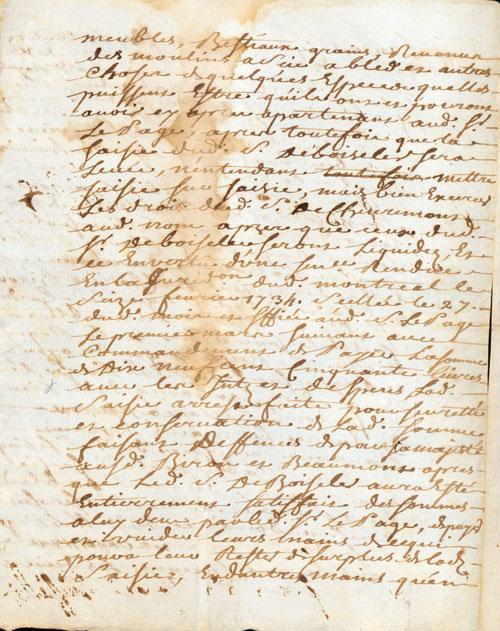 meubles, Bestiaux grains, Revenus
des moulins a scie a bled et autres
choses de quelques Espece quelles
puissent Estre quils ont et pouront
avoir et apres apartenant aud. Sr.
Le Page, apres toutefois que la
saisie dud. S. Deboisele sera
Levée, n'entendant toutefois mettre
saisie sur saisie, mais bien Exercer
Les droits dud. S. De Chevremont
aud. nom apres que ceux dud.
Sr. Deboisele seront Liquidez, Et
ce Envertu d'une sence Rendue
En la Jurison dud. montreal le
Seize fevrier 1734. Scellée le 27.
dud. mois et signiffié aud. S. Le Page
Le premier mars suivant avec
Commandement de Payer La somme
de Dix neuf cens Cinquante livres
avec les Intr. et despens Lad.
Saisie arest faite pour seureté
et conservation de lad. somme
faisant Deffences de par sa majesté
auxd. Biron et Beaumont apres
que Led. S. DeBoisele aura Esté
Entierement satisffait des sommes
a luy deue par led. S. Le Page, de payer
et vuider leurs mains de ce qui
poura leur Rester de surplus de lad.
Saisie, En d'autres mains qu'en